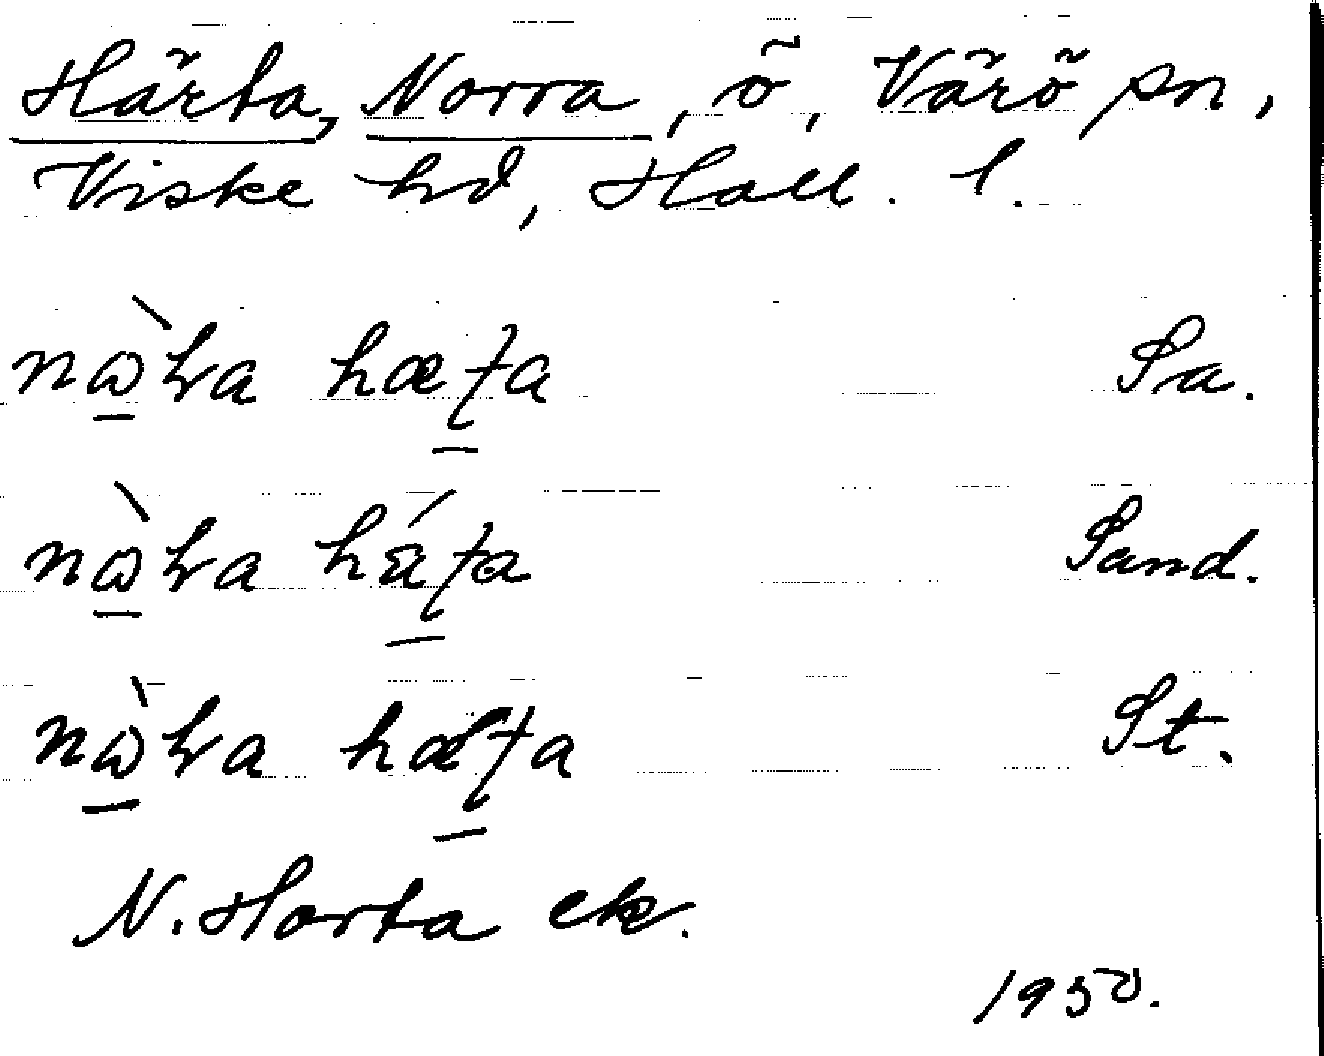 Härta, Norra, ö, Värö sn,
Viske hd, Hall. l.
nɷ̀ra hæʈa Sa.
nɷ̀ra háʈa Sand.
nɷ̀ra hǽʈa St.
N. Horta ek.
1950.